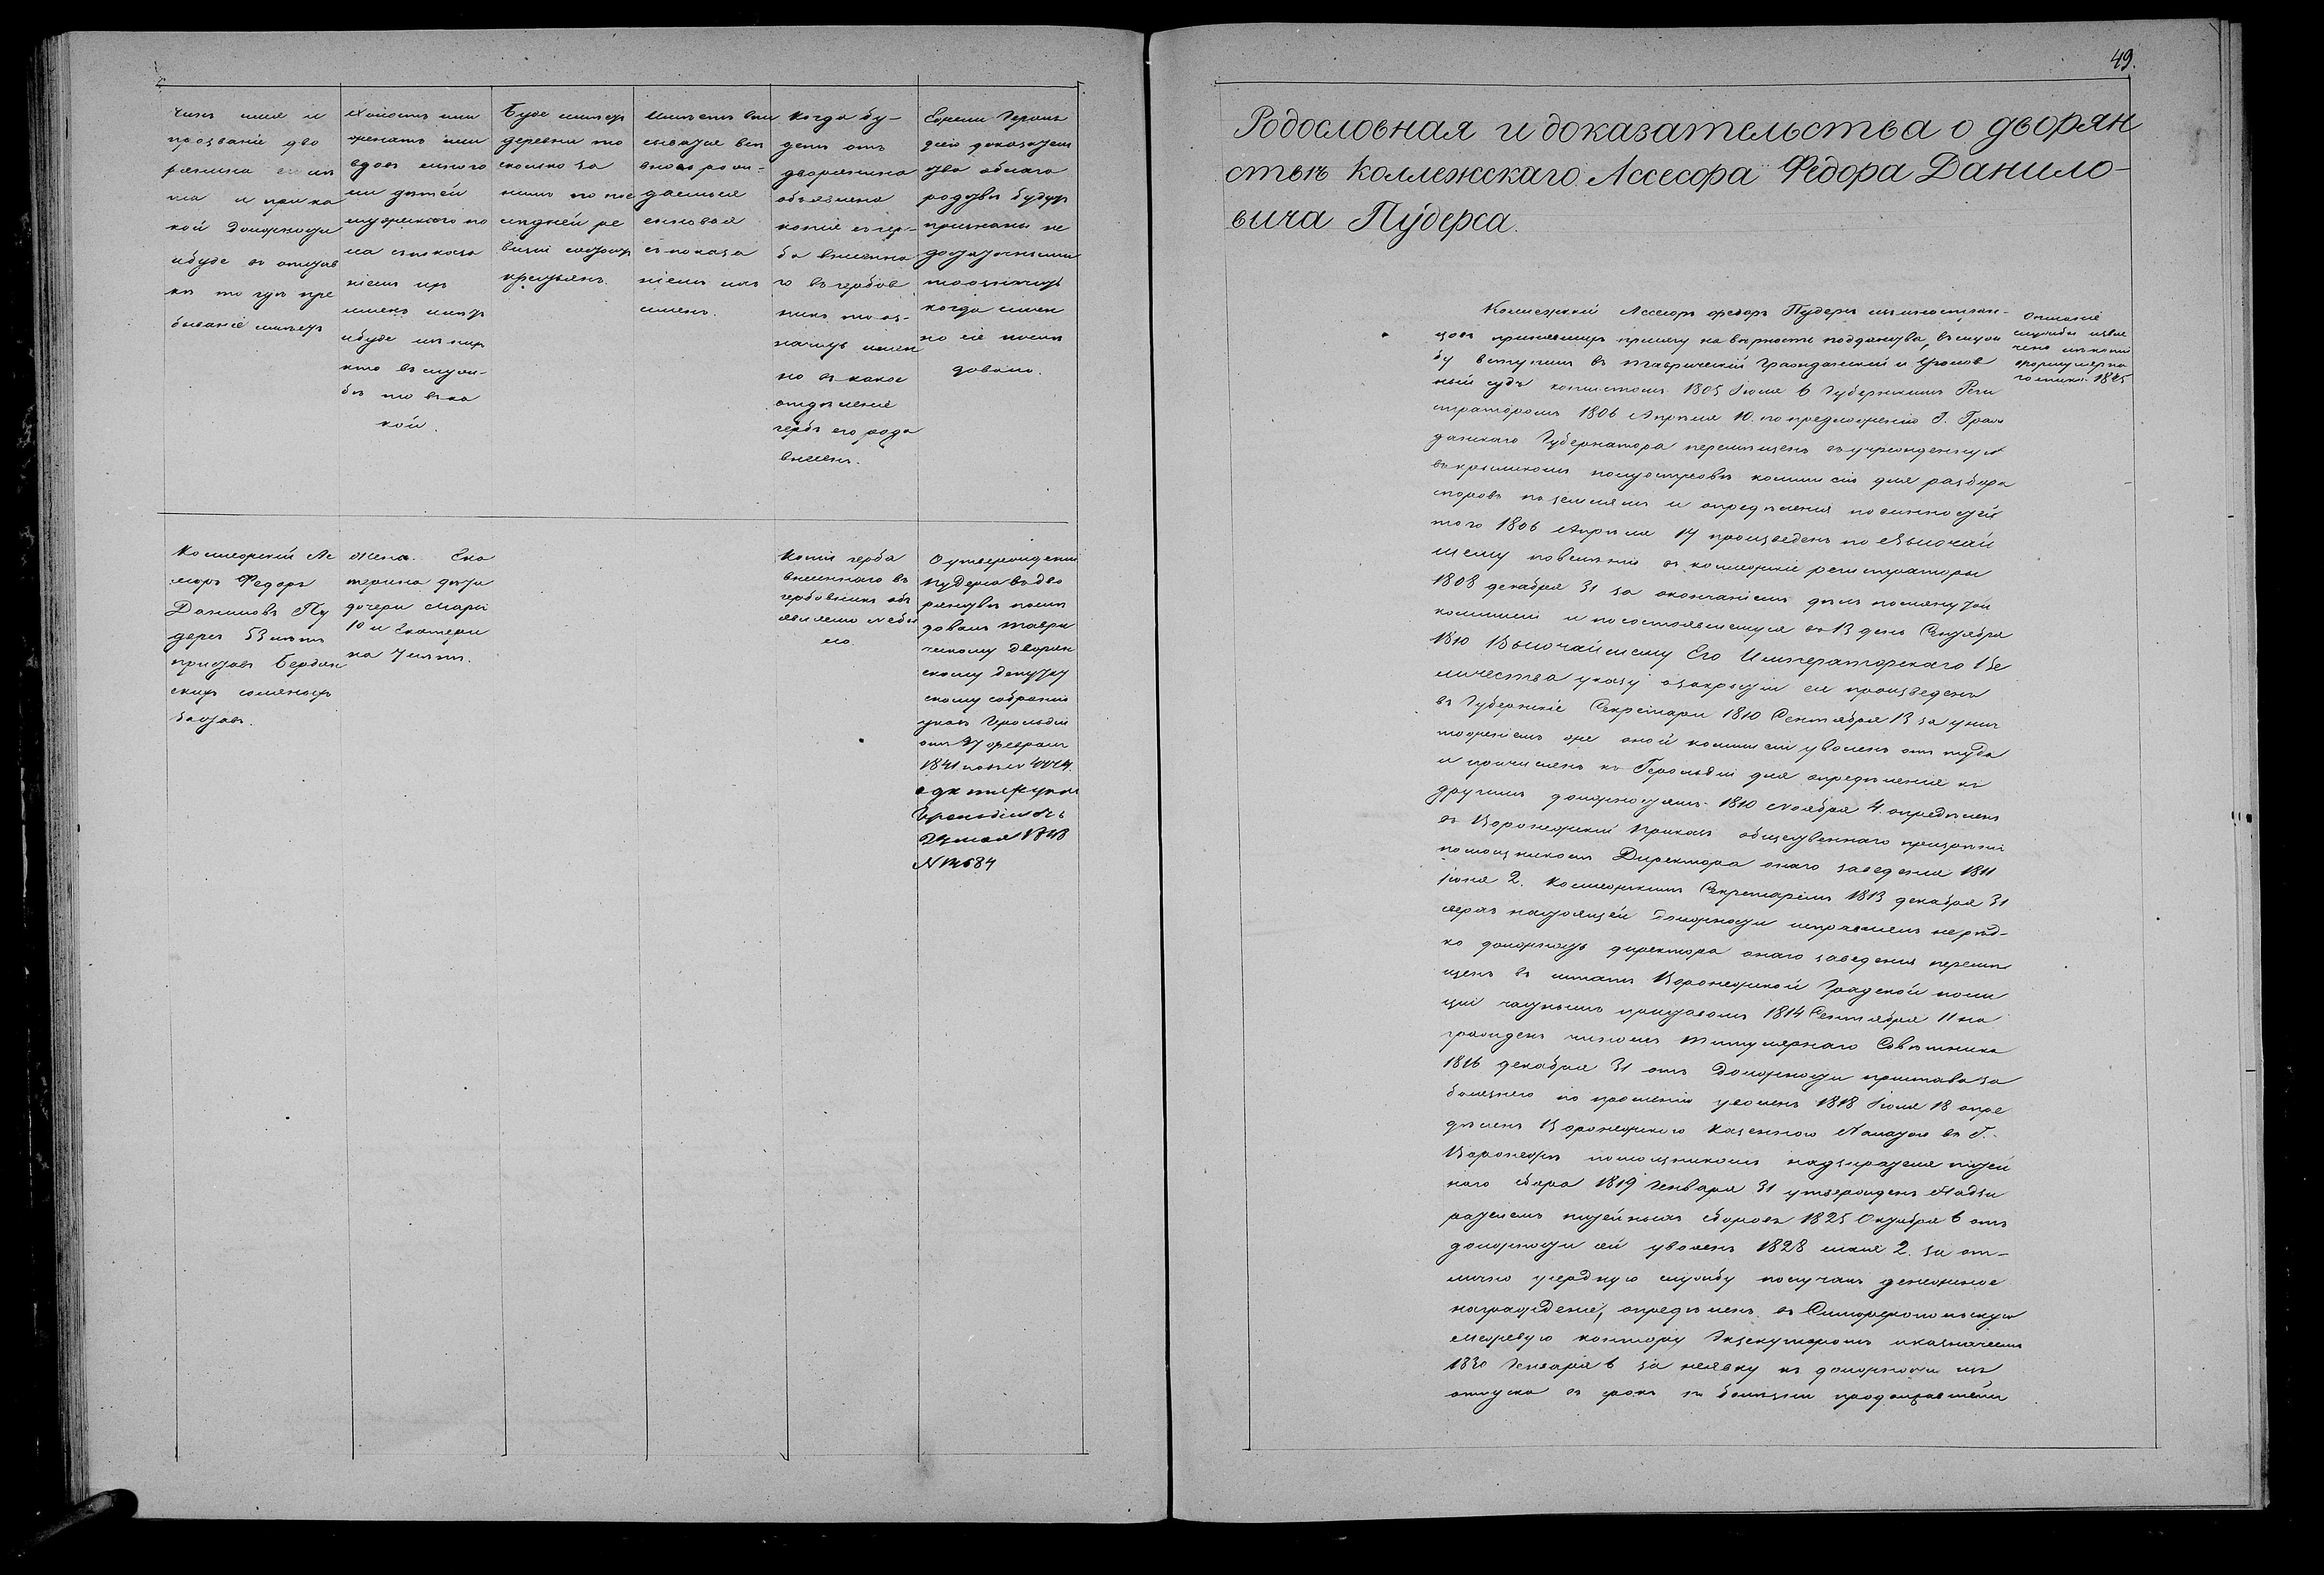 49.
Чинъ имя и
прозваніе дво
рянина
та и при ка
кой должности
и буде въ отстав
кѣ то гдѣ пре
бываніе имѣетъ
Холостъ или
женатъ или
вдовъ много
ли дѣтей
мужескаго по
ла съ показа
ніемъ ихъ
именъ лѣтъ
и буде изъ нихъ
кто въ служ-
бѣ то въ ка
кой.
Буде имѣетъ
деревни то
сколько за
нимъ по пос
лѣдней ре
визіи состоитъ
крестьянъ.
сказа
ніемъ ихъ
именъ.
Когда бу-
детъ отъ
дворянина
объявлена
копія съ гер-
ба внесенна
го въ гербов
никъ то оз-
начить имен
но въ какое
отдѣленіе
гербъ его рода
внесенъ.
Ежели Героль
діею доказатель
ства обнаго
родства будутъ
признаны не
достаточными
то означить
когда имен
но сіе послѣ
довало.
Коллежскій Ас
сесоръ Федоръ
Даниловъ Пу
дерсъ 53 лѣтъ
приставъ Бердян
скихъ соляныхъ
заставъ.
Жена Ека
терина дѣти
дочери Марія
10 и Екатери
на 7 лѣтъ.
Копія герба
внесеннаго въ
гербовникъ объ
явлено не бы
ло.
О утвержденіи
Пудерса въ дво
рянствѣ послѣ
довалъ Таври
ческому Дворян
скому депутат
скому собранію
указъ Герольдіи
отъ 27 февраля
1841
Герольдіи отъ
24 мая 1843
N 12684
Родословная и доказательства о дворян
ствѣ Коллежскаго Ассесора Федора Данило-
вича Пудерса.
Описаніе
службы извле
чено изъ копіи
формулярна
го списка 1845
Коллежскій Ассесоръ Федоръ Пудерсъ изъ иностран-
цовъ принявшихъ присягу на вѣрность подданства, въ служ
бу вступилъ въ Таврическій Гражданскій и Уголов
ный судъ копистомъ 1805 Іюля 6 Губернскимъ Реги
страторомъ 1806 Апрѣля 10. по предложенію Г. Граж
данскаго Губернатора перемѣщенъ въ учрежденную
въ крымскомъ полуостровѣ коммисію для разбора
споровъ по землямъ и опредѣленія повинностей
того 1806 Апрѣля 14 произведенъ по Высочай
шему повелѣнію въ коллежскіе регистраторы
1808 декабря 31 за окончаніемъ дѣлъ помянутой
коммисіи и по состоявшемуся въ 13 день Сентября
1810 Высочайшему Его Императорскаго Ве
личества указу о закрытіи ея произведенъ
въ Губернскіе Секретари 1810 Сентября 13 за унич
тоженіемъ же оной коммисіи уволенъ отъ туда
и причисленъ къ Герольдіи для опредѣленія къ
другимъ должностямъ. 1810 Ноября 4. опредѣленъ
въ Воронежскій Приказъ общественнаго призрѣнія
помощникомъ Директора онаго заведенія 1811
Іюня 2. Коллежскимъ Секретаремъ 1813 декабря 31
сверхъ настоящей должности исправлялъ нерѣд-
ко должность директора онаго заведенія перемѣ
щенъ въ штатъ Воронежской Градской поли
ціи частнымъ приставомъ 1814 Сентября 11 на
гражденъ чиномъ Титулярнаго Совѣтника
1816 декабря 31 отъ должности пристава за
болезнею по прошенію уволенъ 1818 Іюля 18 опре
дѣленъ Воронежскою Казенною Палатою въ Г.
Воронежъ помощникомъ надзирателя питей
наго сбора 1819 Генваря 31 утвержденъ Надзи
рателемъ питейныхъ сборовъ 1825 Октября 6 отъ
должности сей уволенъ 1828 мая 2. за от-
лично усердную службу получилъ денежное
награжденіе, опредѣленъ въ Симферопольскую
Межевую контору Экзекуторомъ и казначеемъ
1830 Генваря 6 за неявку къ должности изъ
отпуска въ срокъ по болѣзни продолжавшейся